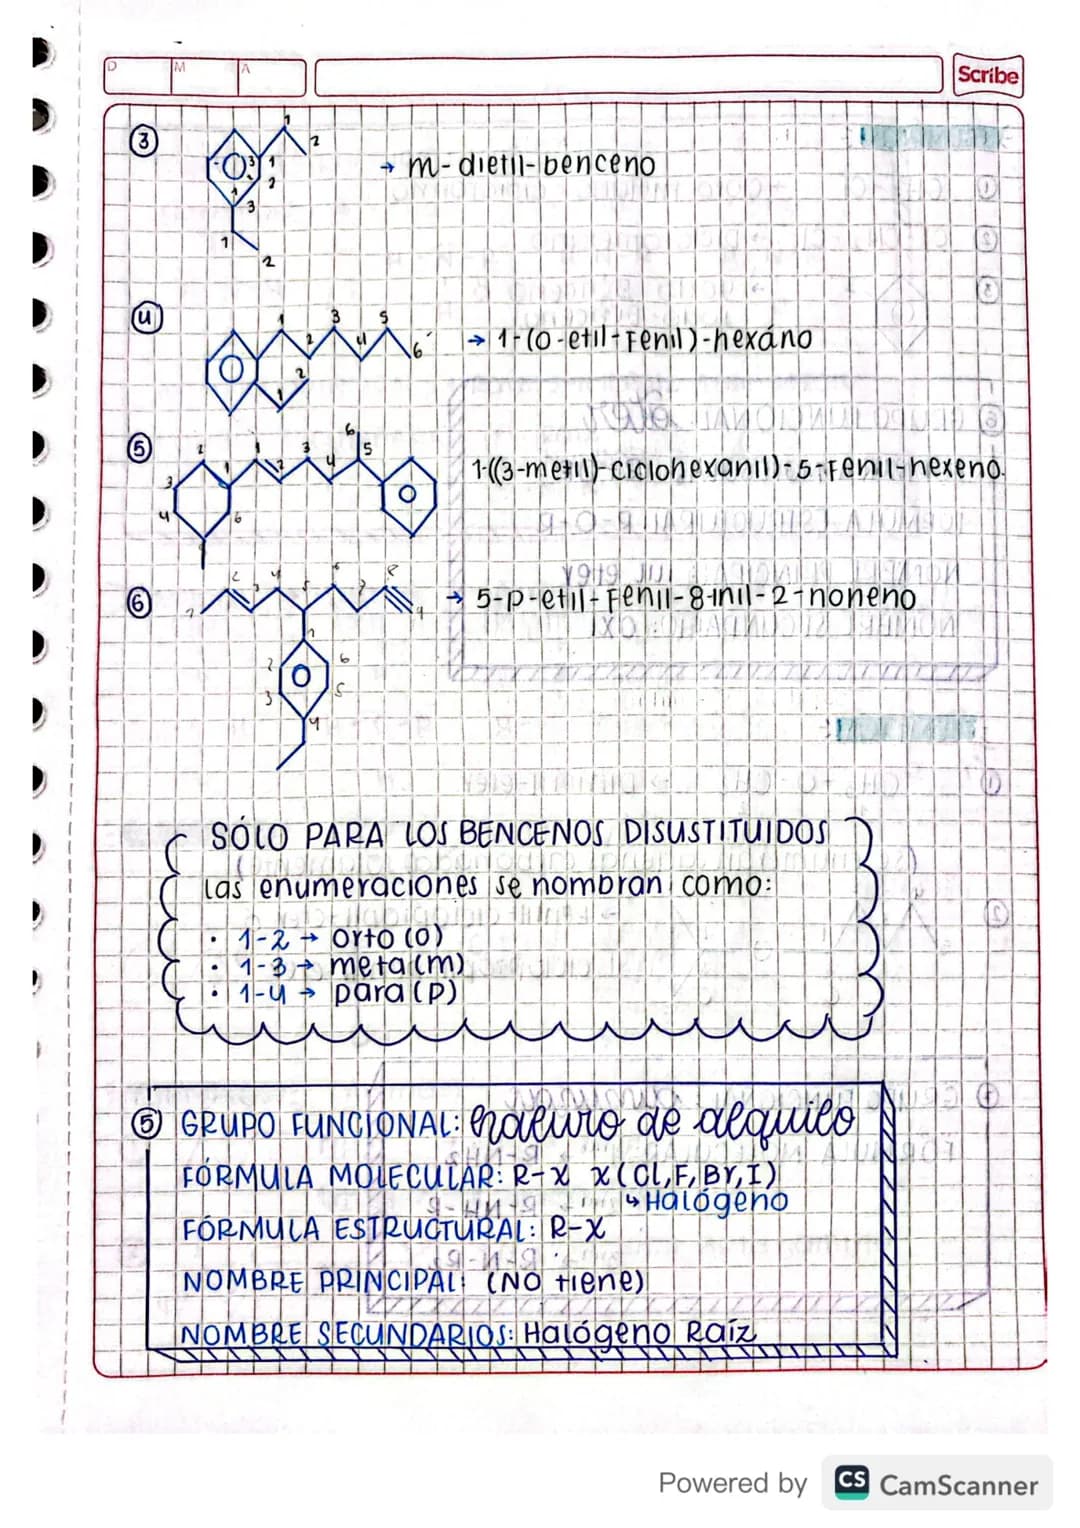 D M A
Scribe
③
1 2
3 1
2
3
1
2
→ m-dietil-benceno
④
1 2 3 4 5 6
1 2
→ 1-(o-etil-Fenil)-hexáno
⑤
2 1 1 2 3 4 6 5
3
4 6
1-((3-metil)-ciclohexanil)-5-Fenil-hexeno.
⑥
2 3 4 5 7
→ 5-p-etil-Fenil-8-inil-2-noneno
1
2 6
3 5
4
SÓLO PARA LOS BENCENOS DISUSTITUIDOS
Las enumeraciones se nombran como:
• 1-2 → orto (o)
• 1-3 → meta (m)
• 1-4 → para (p)
⑤ GRUPO FUNCIONAL: Haluro de alquilo
FÓRMULA MOLECULAR: R-X X (Cl, F, Br, I)
↳ Halógeno
FÓRMULA ESTRUCTURAL: R-X
NOMBRE PRINCIPAL: (NO tiene)
NOMBRE SECUNDARIOS: Halógeno Raíz
Powered by CS CamScanner